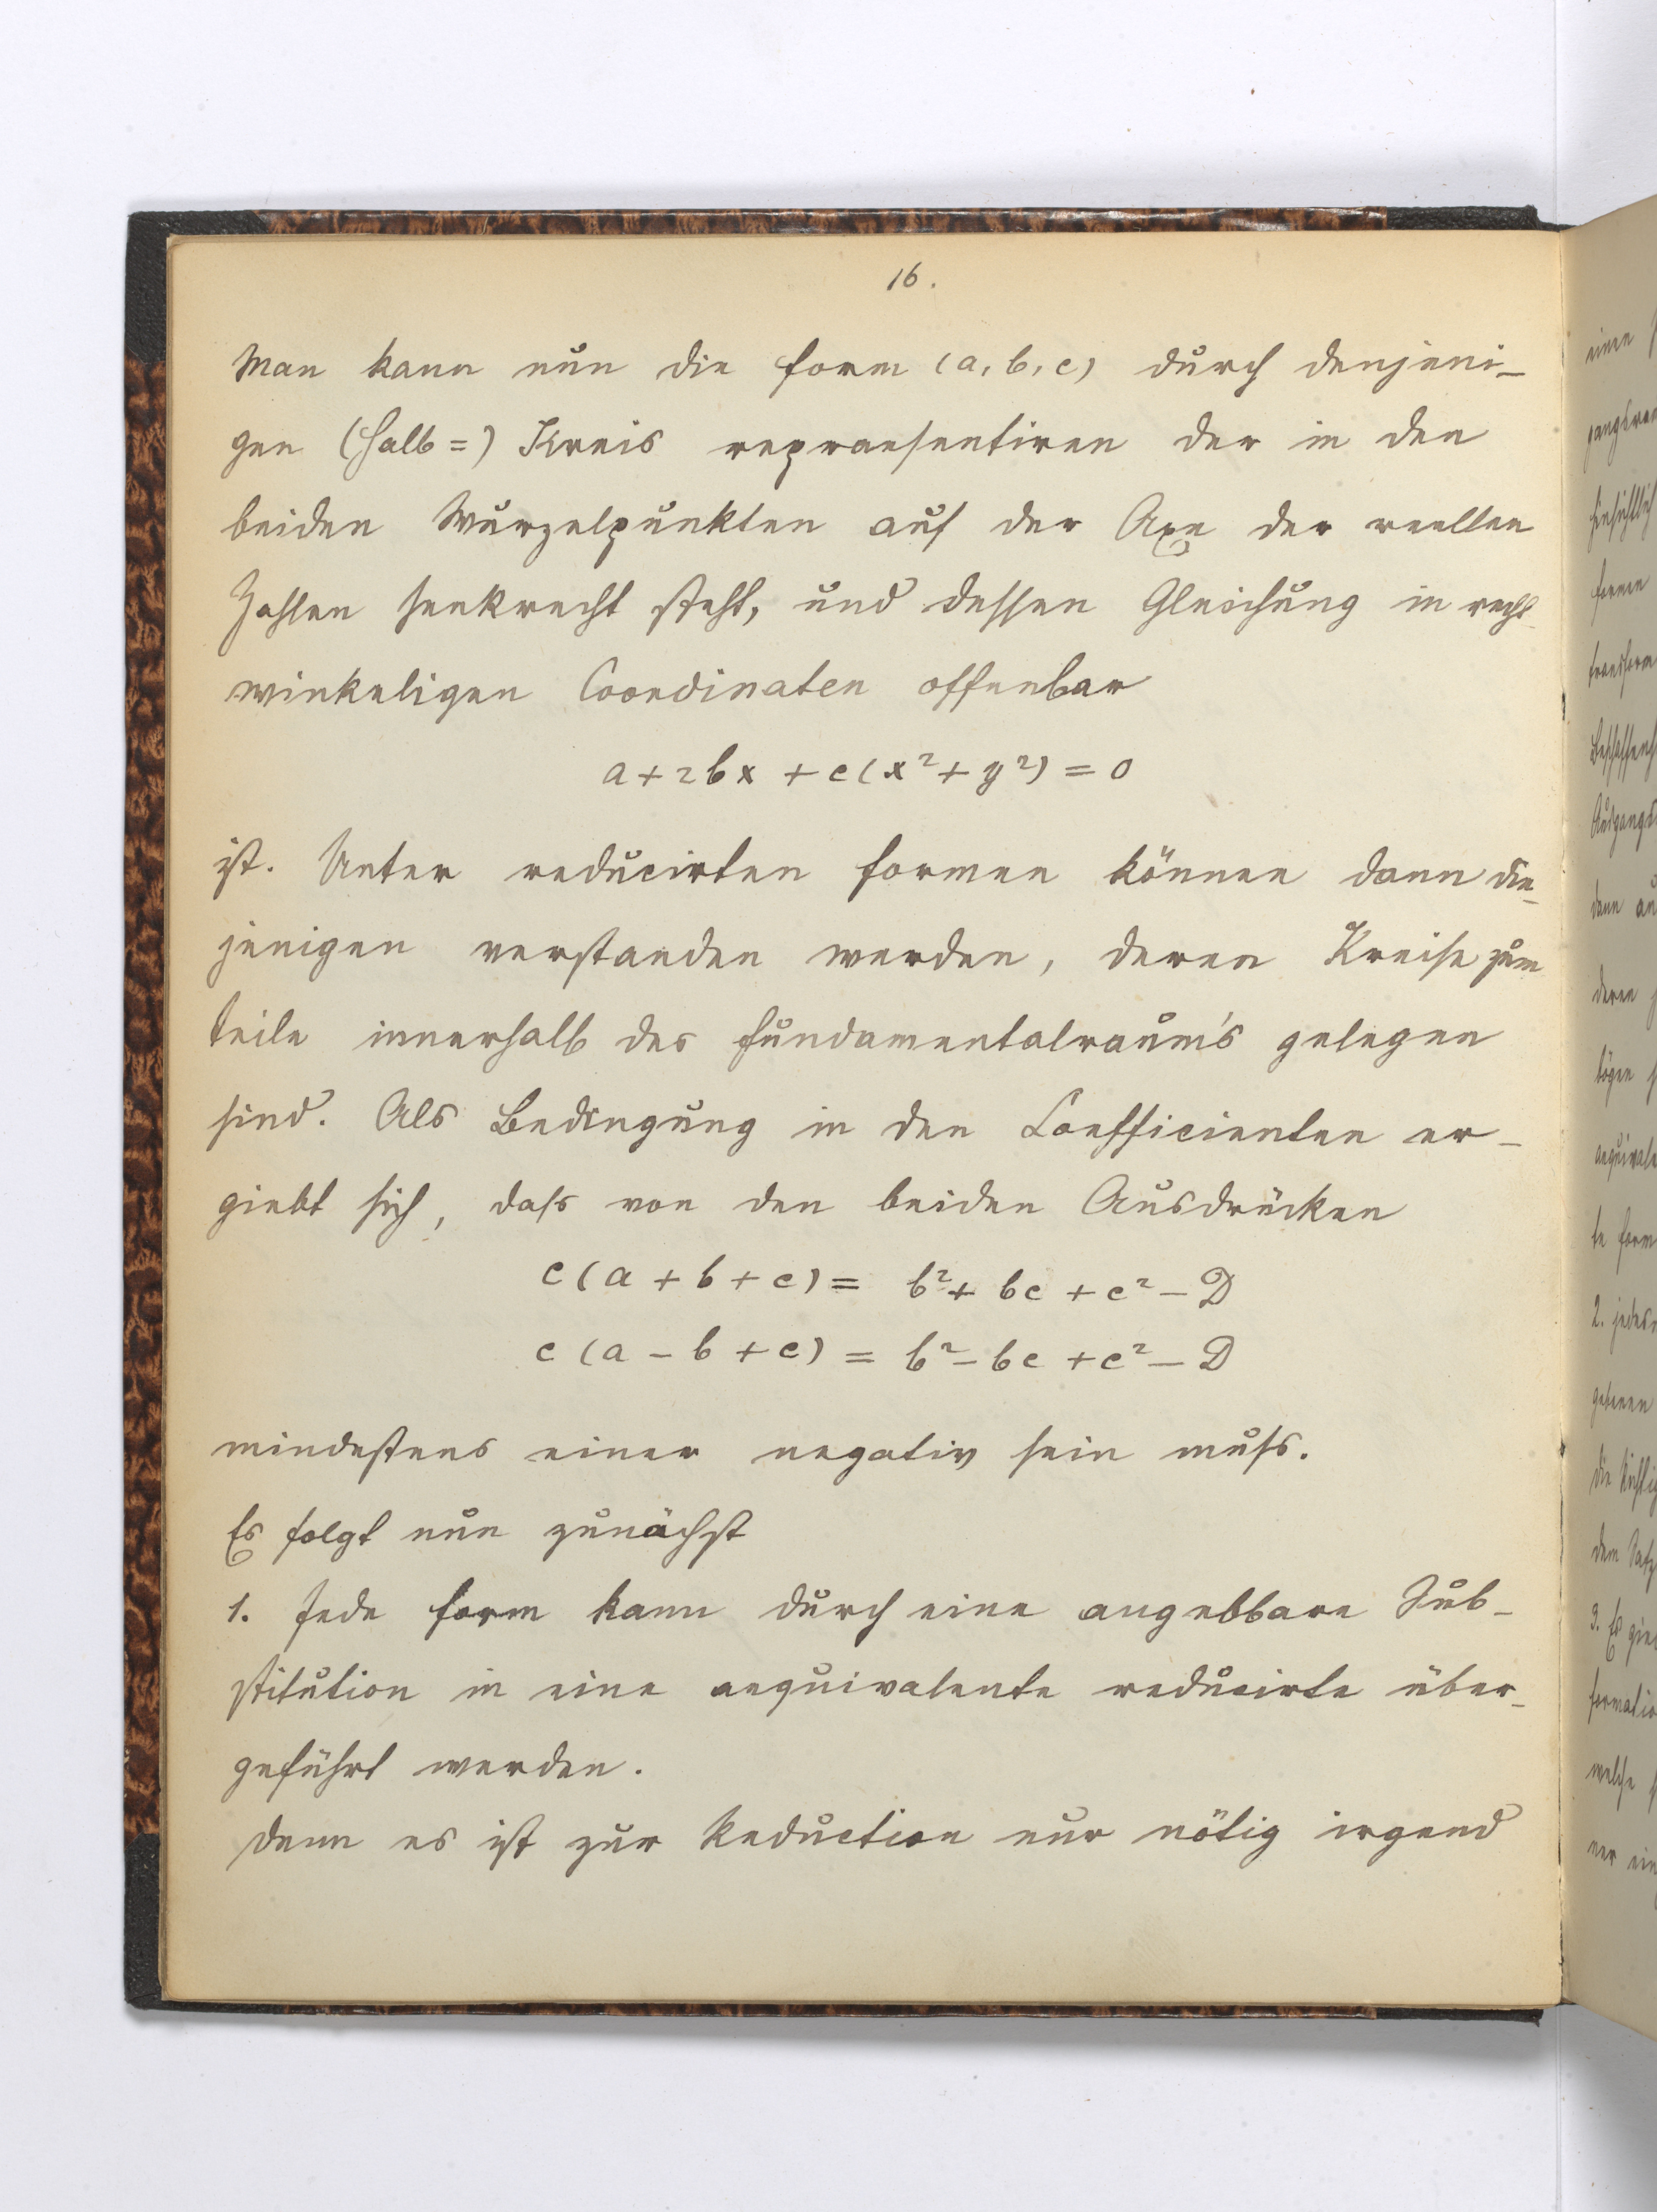 16.
Man kann nun die Form (a, b, c) durch denjeni-
gen (Halb=) Kreis repraesentiren der in den
beiden Wurzelpunkten auf der Axe der reellen
Zahlen senkrecht steht, und dessen Gleichung in recht-
winkeligen Coordinaten offenbar
a + 2bx + c(x² + y²) = 0
ist. Unter reducirten Formen können dann die-
jenigen verstanden werden, deren Kreise zum
teile innerhalb des Fundamentalraum's gelegen
sind. Als Bedingung in den Coefficienten er-
giebt sich, dass von den beiden Ausdrücken
c(a + b + c) = b² + bc + c² - D
c(a - b + c) = b² - bc + c² - D
mindestens einer negativ sein muss.
Es folgt nun zunächst
1. Jede Form kann durch eine angebbare Sub-
stitution in eine aequivalente reducirte über-
geführt werden.
Denn es ist zur Reduction nur nötig irgend
einen
formen
dann
deren
bögen
2.
3. Es
welche